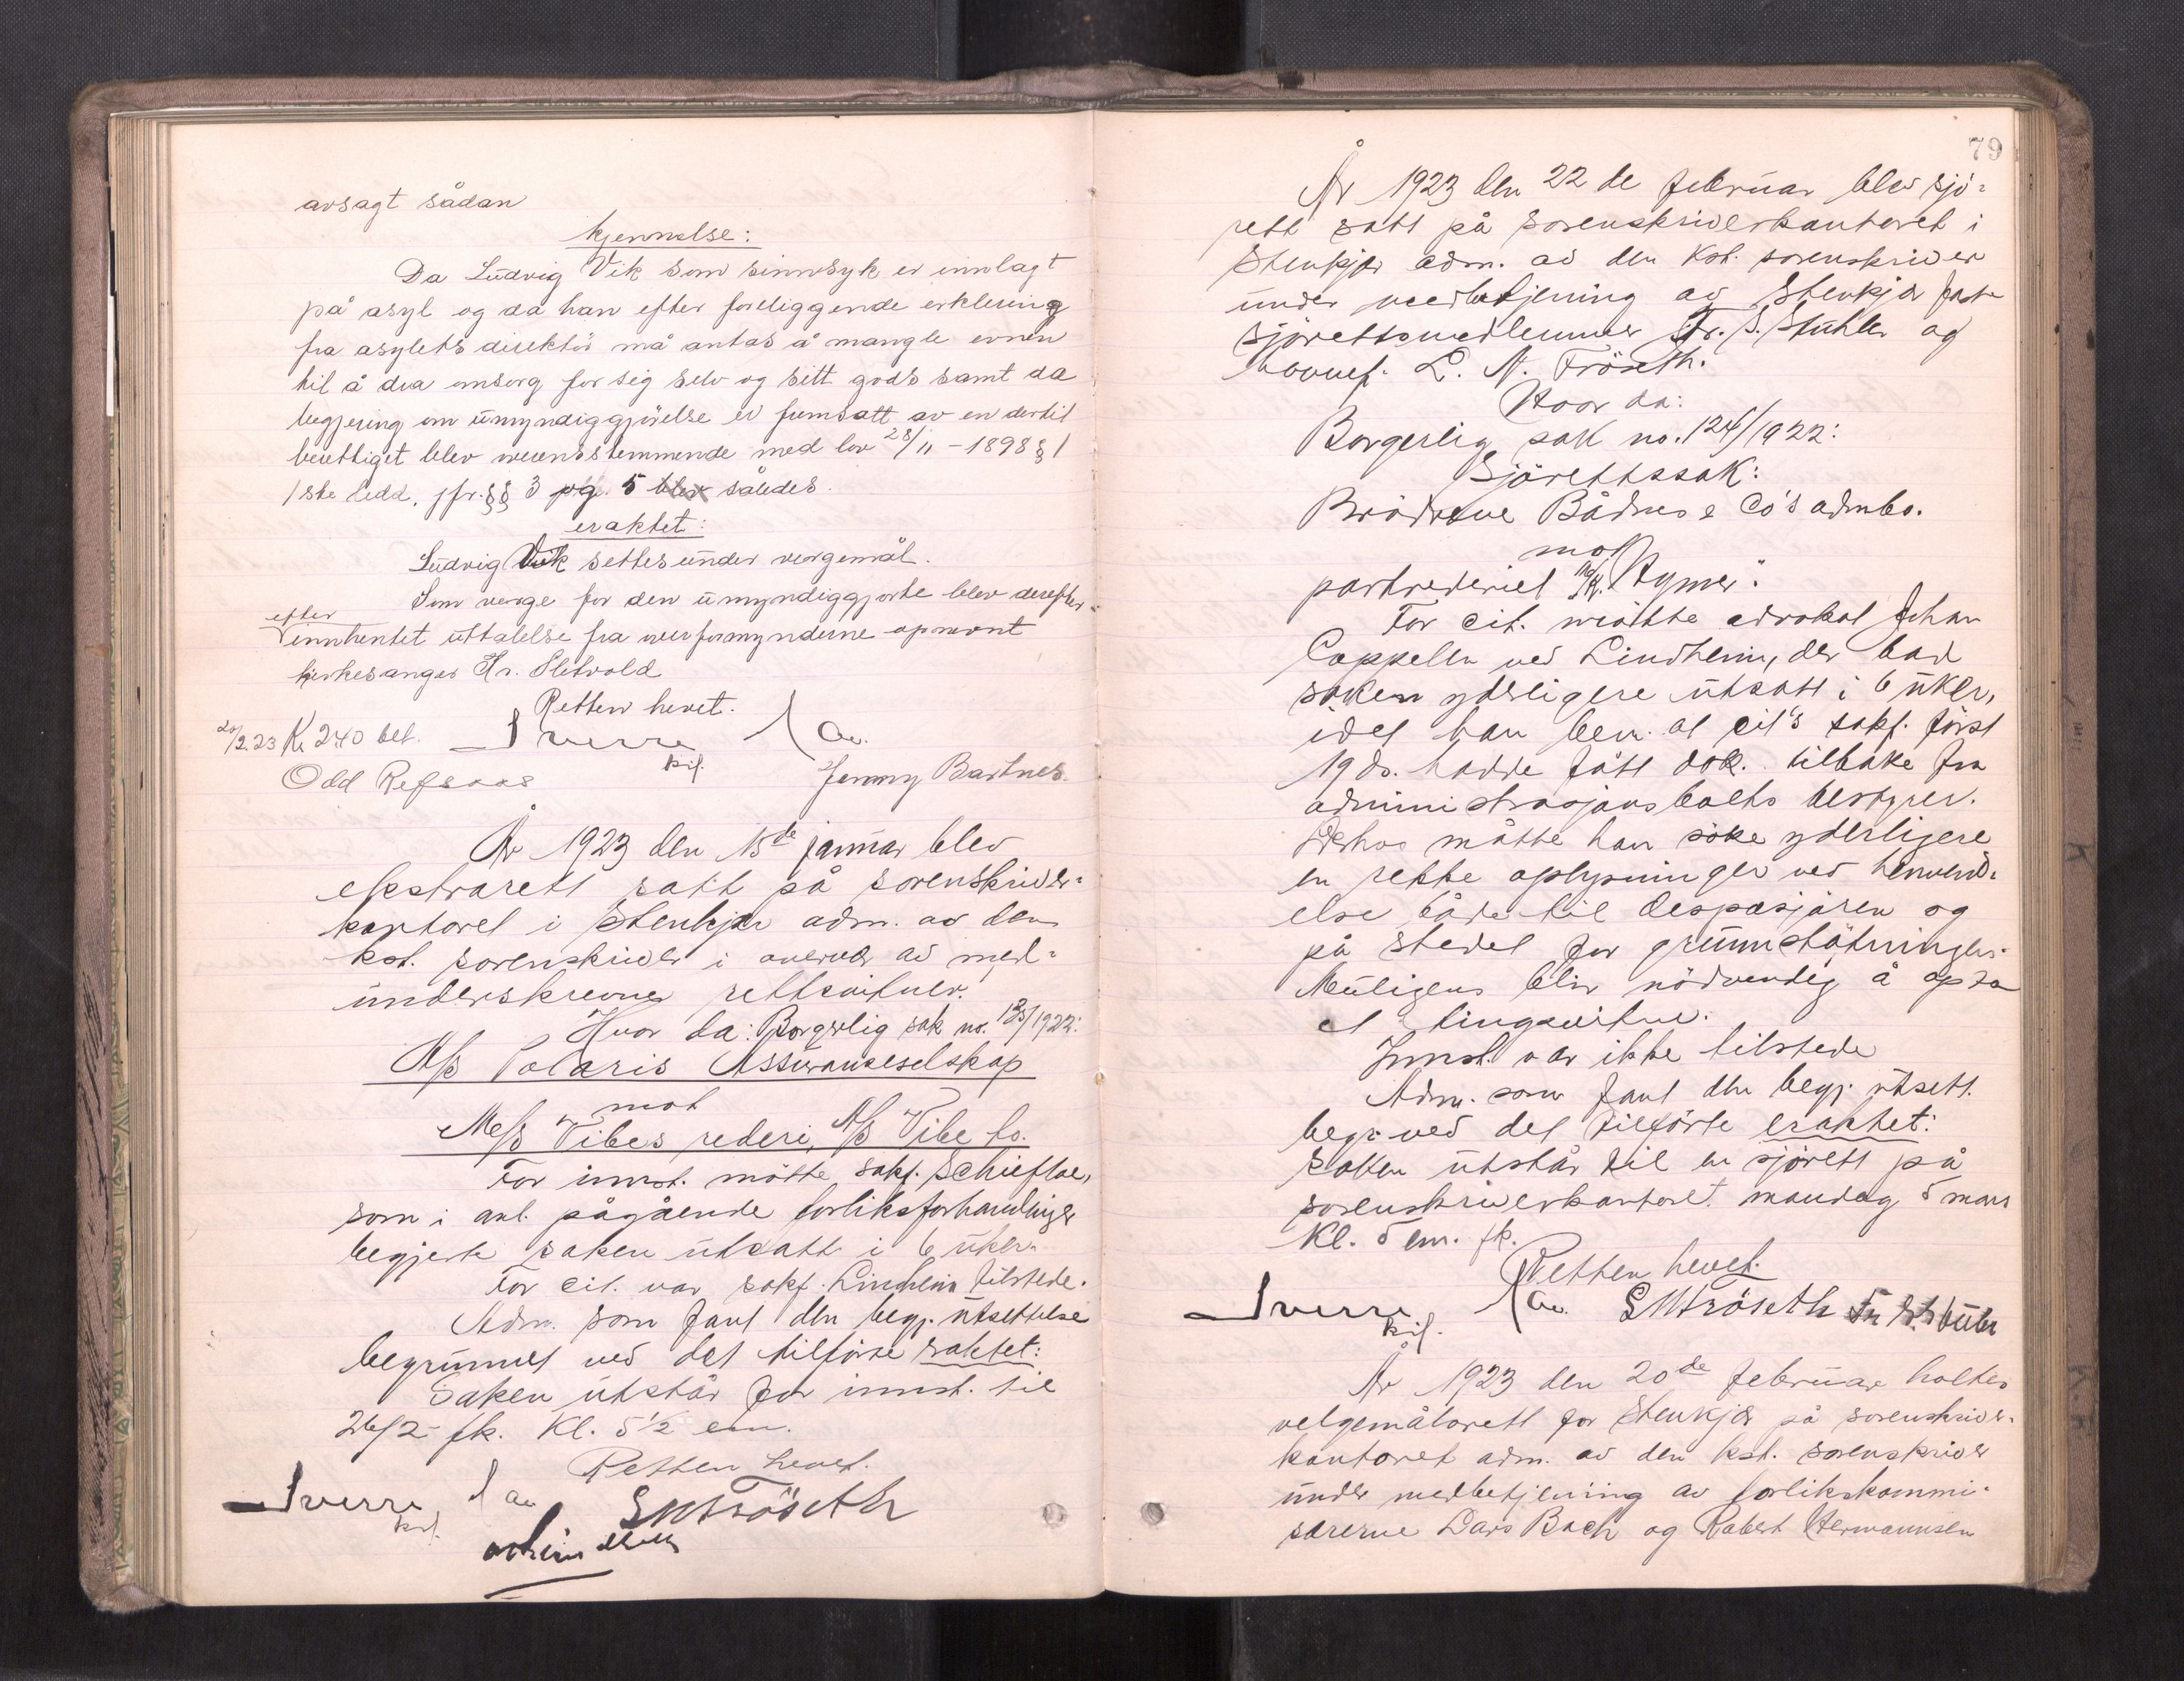 avsagt sådan
kjennelse:
Da Ludvig Vik som sinnsyk er innlagt
på asyl og da han efter foreliggende erklering
fra asylets direktör må antas å mangle evnen
til å dra omsorg for sig selv og sitt gods samt da
begjering om umyndiggjörelse er fremsatt av en dertil
berettiget blev overensstemmende med lov 28/11-1898 § 1
1ste ledd, jfr. §§ 3 og 5 blev således
eraktet:
Ludvig Vik settes under vergemål.
Som verge for den umyndiggjorte blev derefter
efter
innhentet uttalelse fra overformynderne opnevnt
kirkesanger Kr. Sletvold
Retten hevet.
20/2.23 Kr 2.40 bet. Sverre Aa.
kst.
Odd Refsaas Jenny Bartnes.
År 1923 den 15de januar blev
ekstrarett satt på sorenskriver-
kontoret i Stenkjer adm. av den
kst. sorenskriver i overvær av med-
underskrevne rettsvitner.
Hvor da: Borgerlig sak no. 125/1922:
A/S Polaris Assuranseselskap
mot
M/S Vibes rederi, A/S Vibe & Co.
For innst. mötte sakf. Schiefloe,
som i anl. pågående forliksforhandlinger
begjerte saken utsatt i 6 uker.
For cit. var sakf. Lindheim tilstede.
Adm. som fant den begj. utsettelse
begrunnet ved det tilförte eraktet:
Saken utstår for innst. til
26/2 fk. Kl. 5 1/2 em.
Retten hevet.
Sverre Aa. L N Fröseth
kst.
79
År 1923 den 22 de februar blev sjö-
rett satt på sorenskriverkontoret i
Stenkjer adm. av den kst. sorenskriver
under medbetjening av Stenkjer faste
sjörettsmedlemmer Fr. S. Stühler og
L. N. Fröseth.
Hvor da:
Borgerlig sak no. 124/1922:
Sjörettssak:
Brödrene Bådnes & Co's admbo.
mot
partrederiet M/K. "Hymer".
For cit. mötte advokat Johan
Cappelen ved Lindheim, der bad
saken yderligere utsatt i 6 uker,
idet han bem. at cit's sakf. först
19 ds. hadde fått dok. tilbake fra
administrasjonsboets bestyrer.
Derhos måtte han söke yderligere
en rekke oplysninger ved henvend-
else både til despasjören og
på stedet for grunnstötningen.
Muligens blir nödvendig å opta
et tingsvitne.
Innst. var ikke tilstede
Adm. som fant den begj. utsett.
begr. ved det tilförte eraktet:
Saken utstår til en sjörett på
sorenskriverkontoret mandag 5 mars
Kl. 5 em. fk.
Retten hevet.
Sverre Aa. L N Fröseth Fr. S. Stühler
kst.
År 1923 den 20de februar holdtes
vergemålsrett for Stenkjer på sorenskriver-
kontoret adm. av den kst. sorenskriver
under medbetjening av forlikskommi-
særerne Lars Bach og Robert Hermannsen